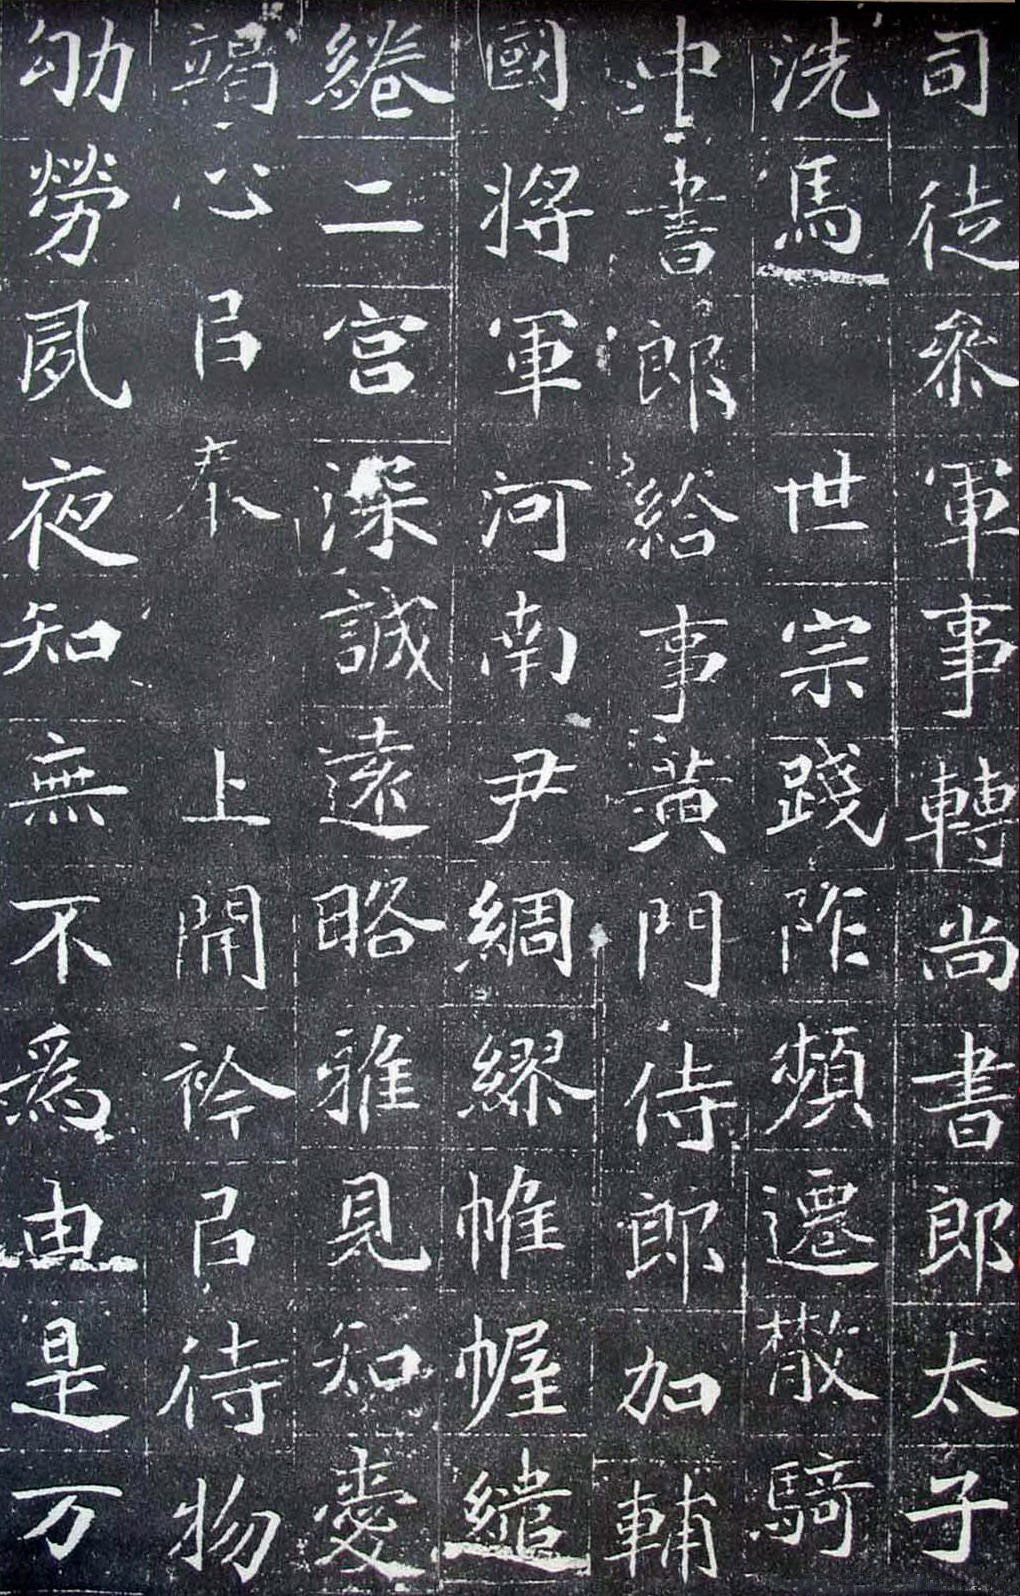 司徒參軍事轉尚書郎太子
洗馬世宗踐阼頻遷散騎
中書郎給事黃門侍郎加輔
國將軍河南尹綢繆帷幄繾
綣二宮深誠遠略雅見知愛
竭心㠯奉上開衿㠯待物
劬勞夙夜知無不為由是万